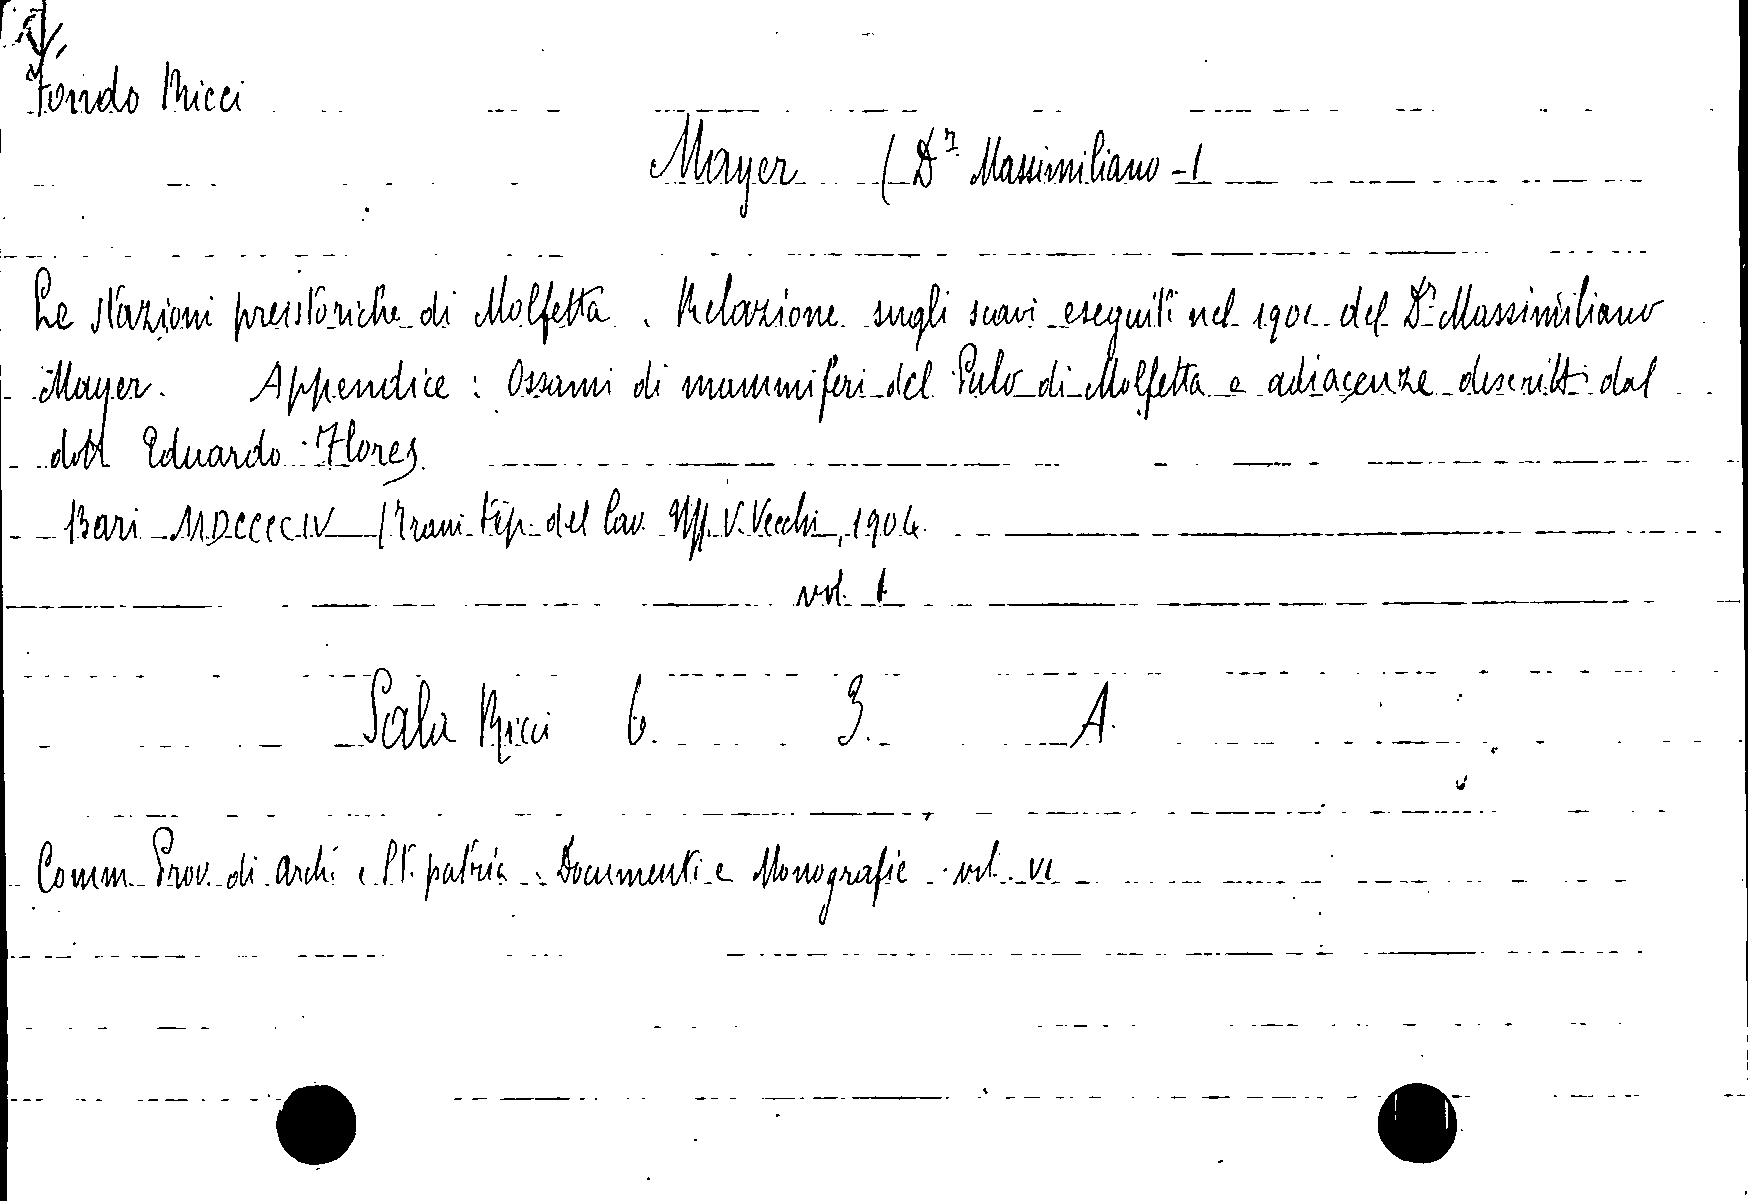 Fondo Ricci
Mayer (Dr. Massimiliano -)
Le Stazioni preistoriche di Molfetta. Relazione sugli scavi eseguiti nel 1901 del Dr. Massimiliano
Mayer. Appendice: Ossami di mammiferi del Pulo di Molfetta e adiacenze descritti dal
dott Eduardo Flores.
Bari MDCCCCIV (Trani tip. del Cav. Uff. V. Vecchi, 1904.
vol. 1
Sala Ricci 6. 3. A.
Comm. Prov. di Arch. e St. patria. Documenti e Monografie. vol. VI